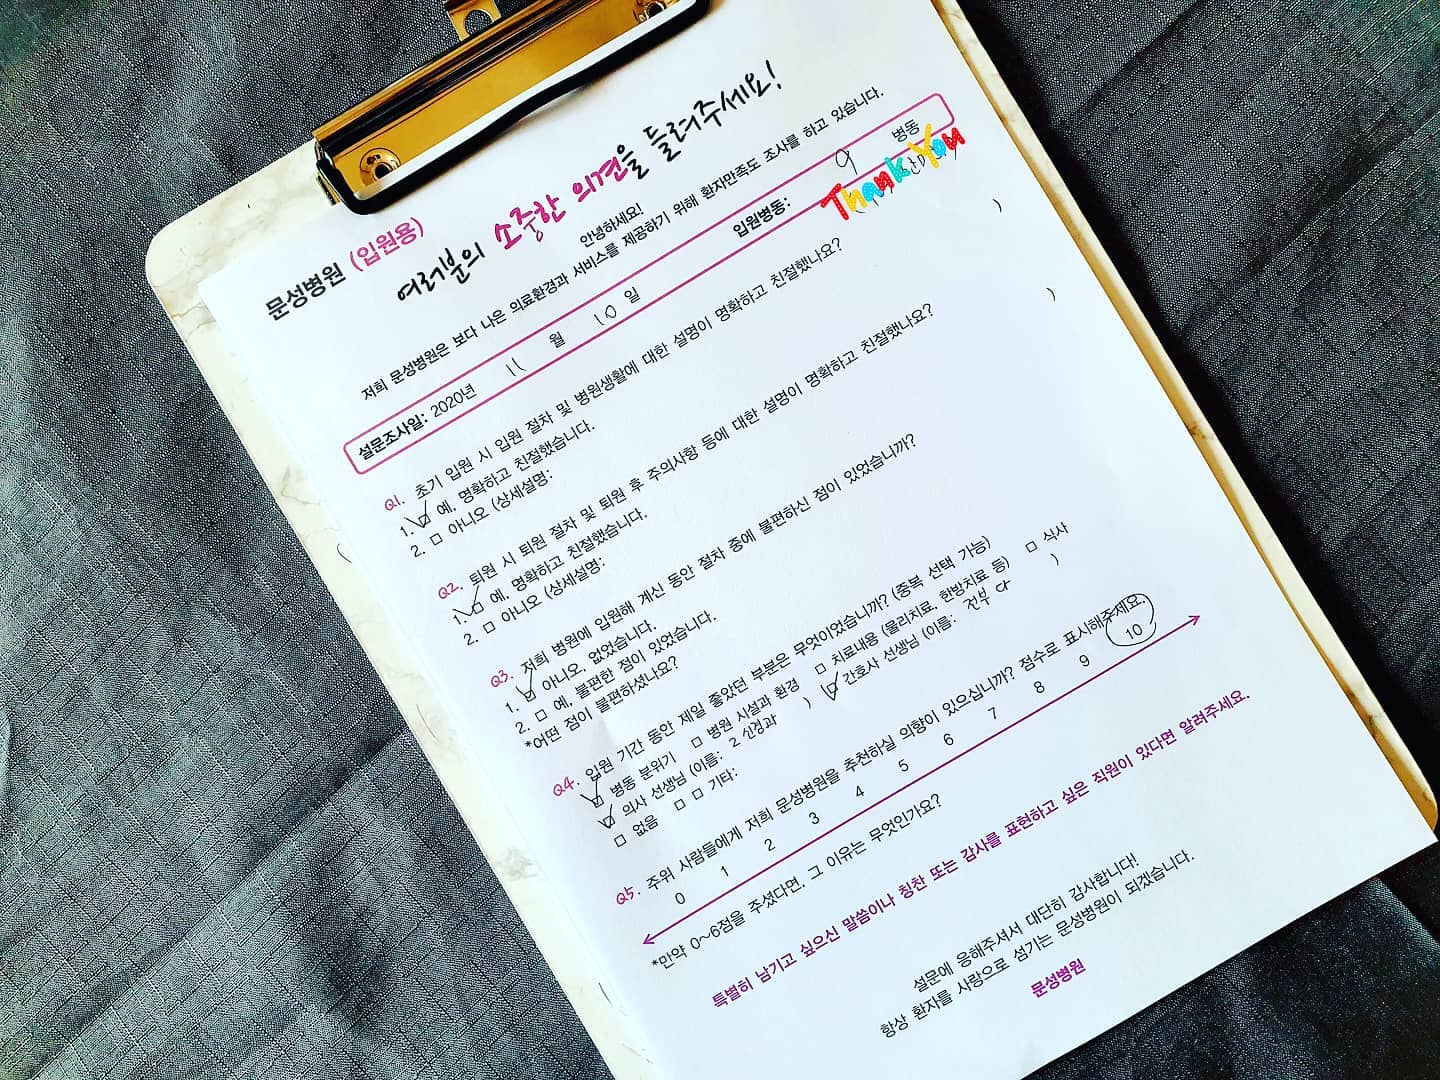 문성병원 (입원용)
여러분의 소중한 의견을 들려주세요!
안녕하세요!
저희 문성병원은 보다 나은 의료환경과 서비스를 제공하기 위해 환자만족도 조사를 하고 있습니다.
설문조사일: 2020년 11 월 10 일 입원병동: 9 병동
Thank You
Q1. 초기 입원 시 입원 절차 및 병원생활에 대한 설명이 명확하고 친절했나요?
1. 예, 명확하고 친절했습니다.
2. □ 아니오 (상세설명: )
Q2. 퇴원 시 퇴원 절차 및 퇴원 후 주의사항 등에 대한 설명이 명확하고 친절했나요?
1. 예, 명확하고 친절했습니다.
2. □ 아니오 (상세설명: )
Q3. 저희 병원에 입원해 계신 동안 절차 중에 불편하신 점이 있었습니까?
1. 아니오, 없었습니다.
2. □ 예, 불편한 점이 있었습니다.
*어떤 점이 불편하셨나요?
Q4. 입원 기간 동안 제일 좋았던 부분은 무엇이었습니까? (중복 선택 가능)
병동 분위기 □ 병원 시설과 환경 □ 치료내용 (물리치료, 한방치료 등) □ 식사
의사 선생님 (이름: 2 신경과 ) 간호사 선생님 (이름: 전부 다 )
□ 없음 □ □ 기타:
Q5. 주위 사람들에게 저희 문성병원을 추천하실 의향이 있으십니까? 점수로 표시해주세요.
0 1 2 3 4 5 6 7 8 9 10
*만약 0~6점을 주셨다면, 그 이유는 무엇인가요?
특별히 남기고 싶으신 말씀이나 칭찬 또는 감사를 표현하고 싶은 직원이 있다면 알려주세요.
설문에 응해주셔서 대단히 감사합니다!
항상 환자를 사랑으로 섬기는 문성병원이 되겠습니다.
문성병원